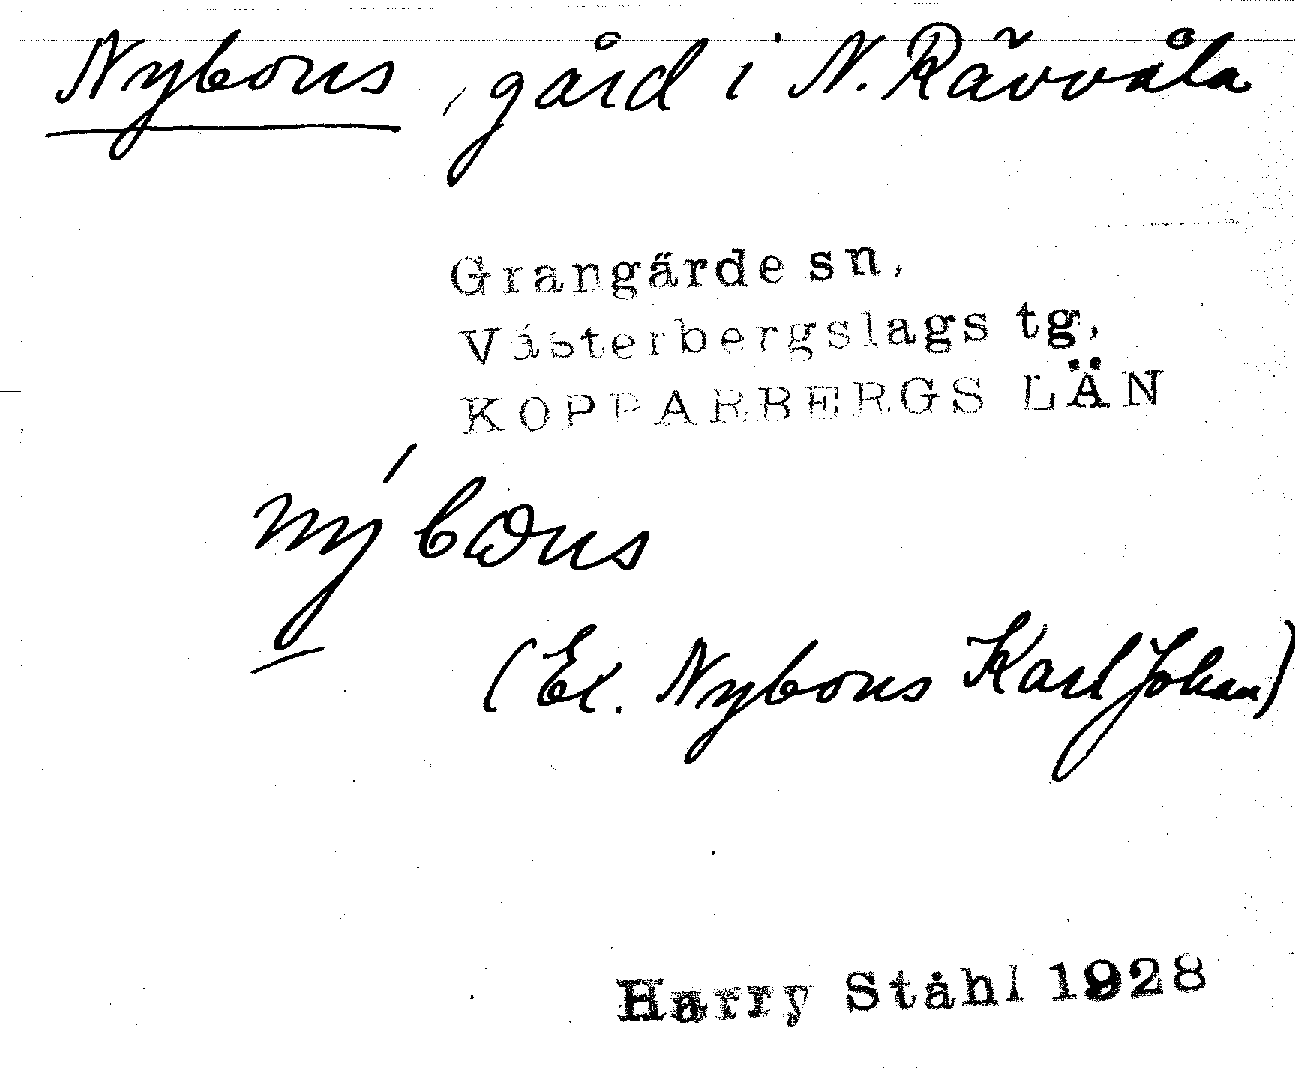 Nybons, gård i N. Rävvåla
Grangärde sn,
Västerbergslags tg,
KOPPARBERGS LÄN
(Ex. Nybons Karl Johan)
Harry Ståhl 1928